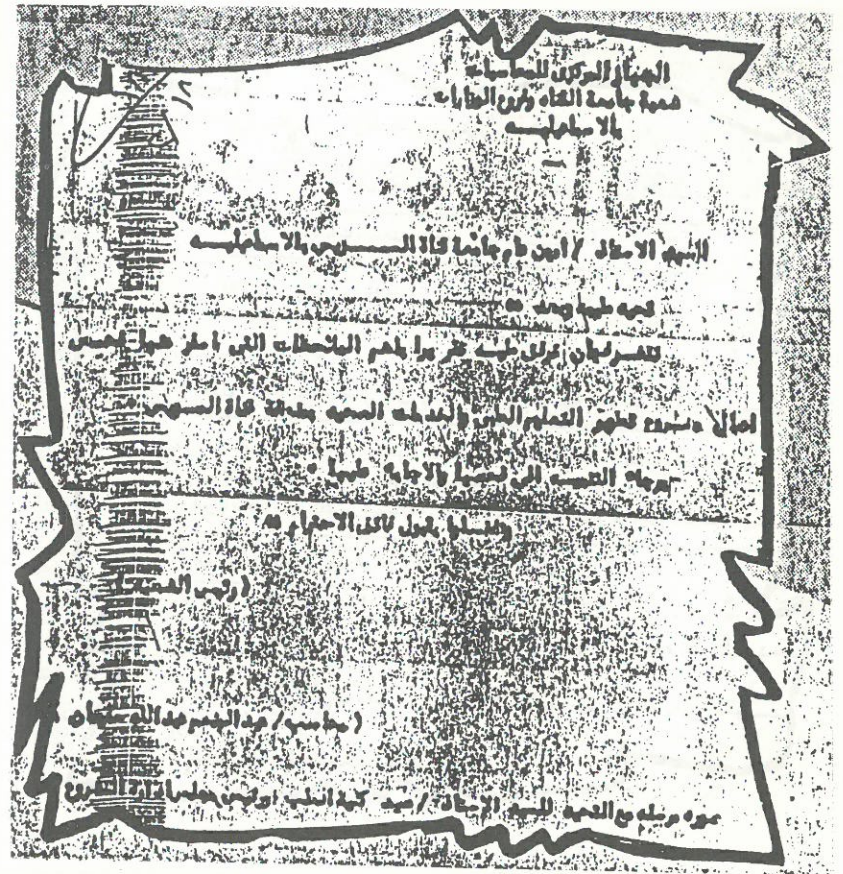 الجهاز المركزى للمحاسبات
شعبة جامعة القناه وفروع الوزارات
بالاسماعيليـــه
السيد الاستاذ / امين عام جامعة قناة الســـــويس بالاسماعيليـــه
تحيه طيبة وبعد ،،
نتشرف بان نرفق طيــه تقريرا باهم الملاحظات التى اسفر عنها فحص
اعمال مشروع تطوير التعليم الطبى والخدمات الصحيه بمنطقة قناة السويس ٠
برجاء التنبيــه الى فحصها والاجابة عليها ٠
وتفضلوا بقبول فائق الاحترام ،،
(رئيس الشعبة)
( محاسب / عبد المنعم عبد الله )
صوره مرسله مع التحيه للسيد الاستاذ / عميد كلية الطب ورئيس مجلس ادارة المشروع